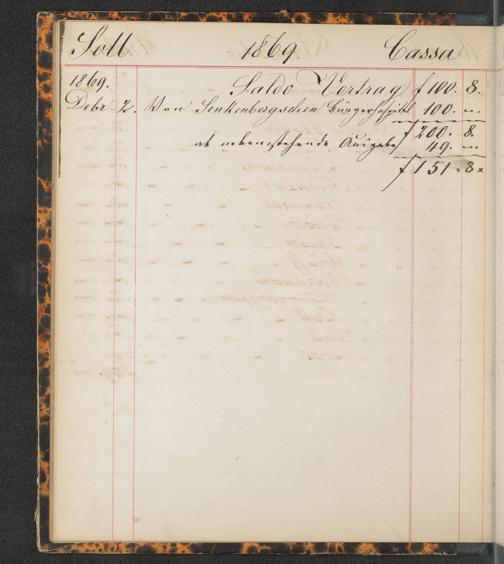 Soll 1869. Cassa
1869.
Saldo Vortrag f 100. 8.
Debr 2. Von Senkenbergschen Bürgerhospital 100. —
f 200. 8.
ab nebenstehende Ausgabe 49. —
f 151. 8